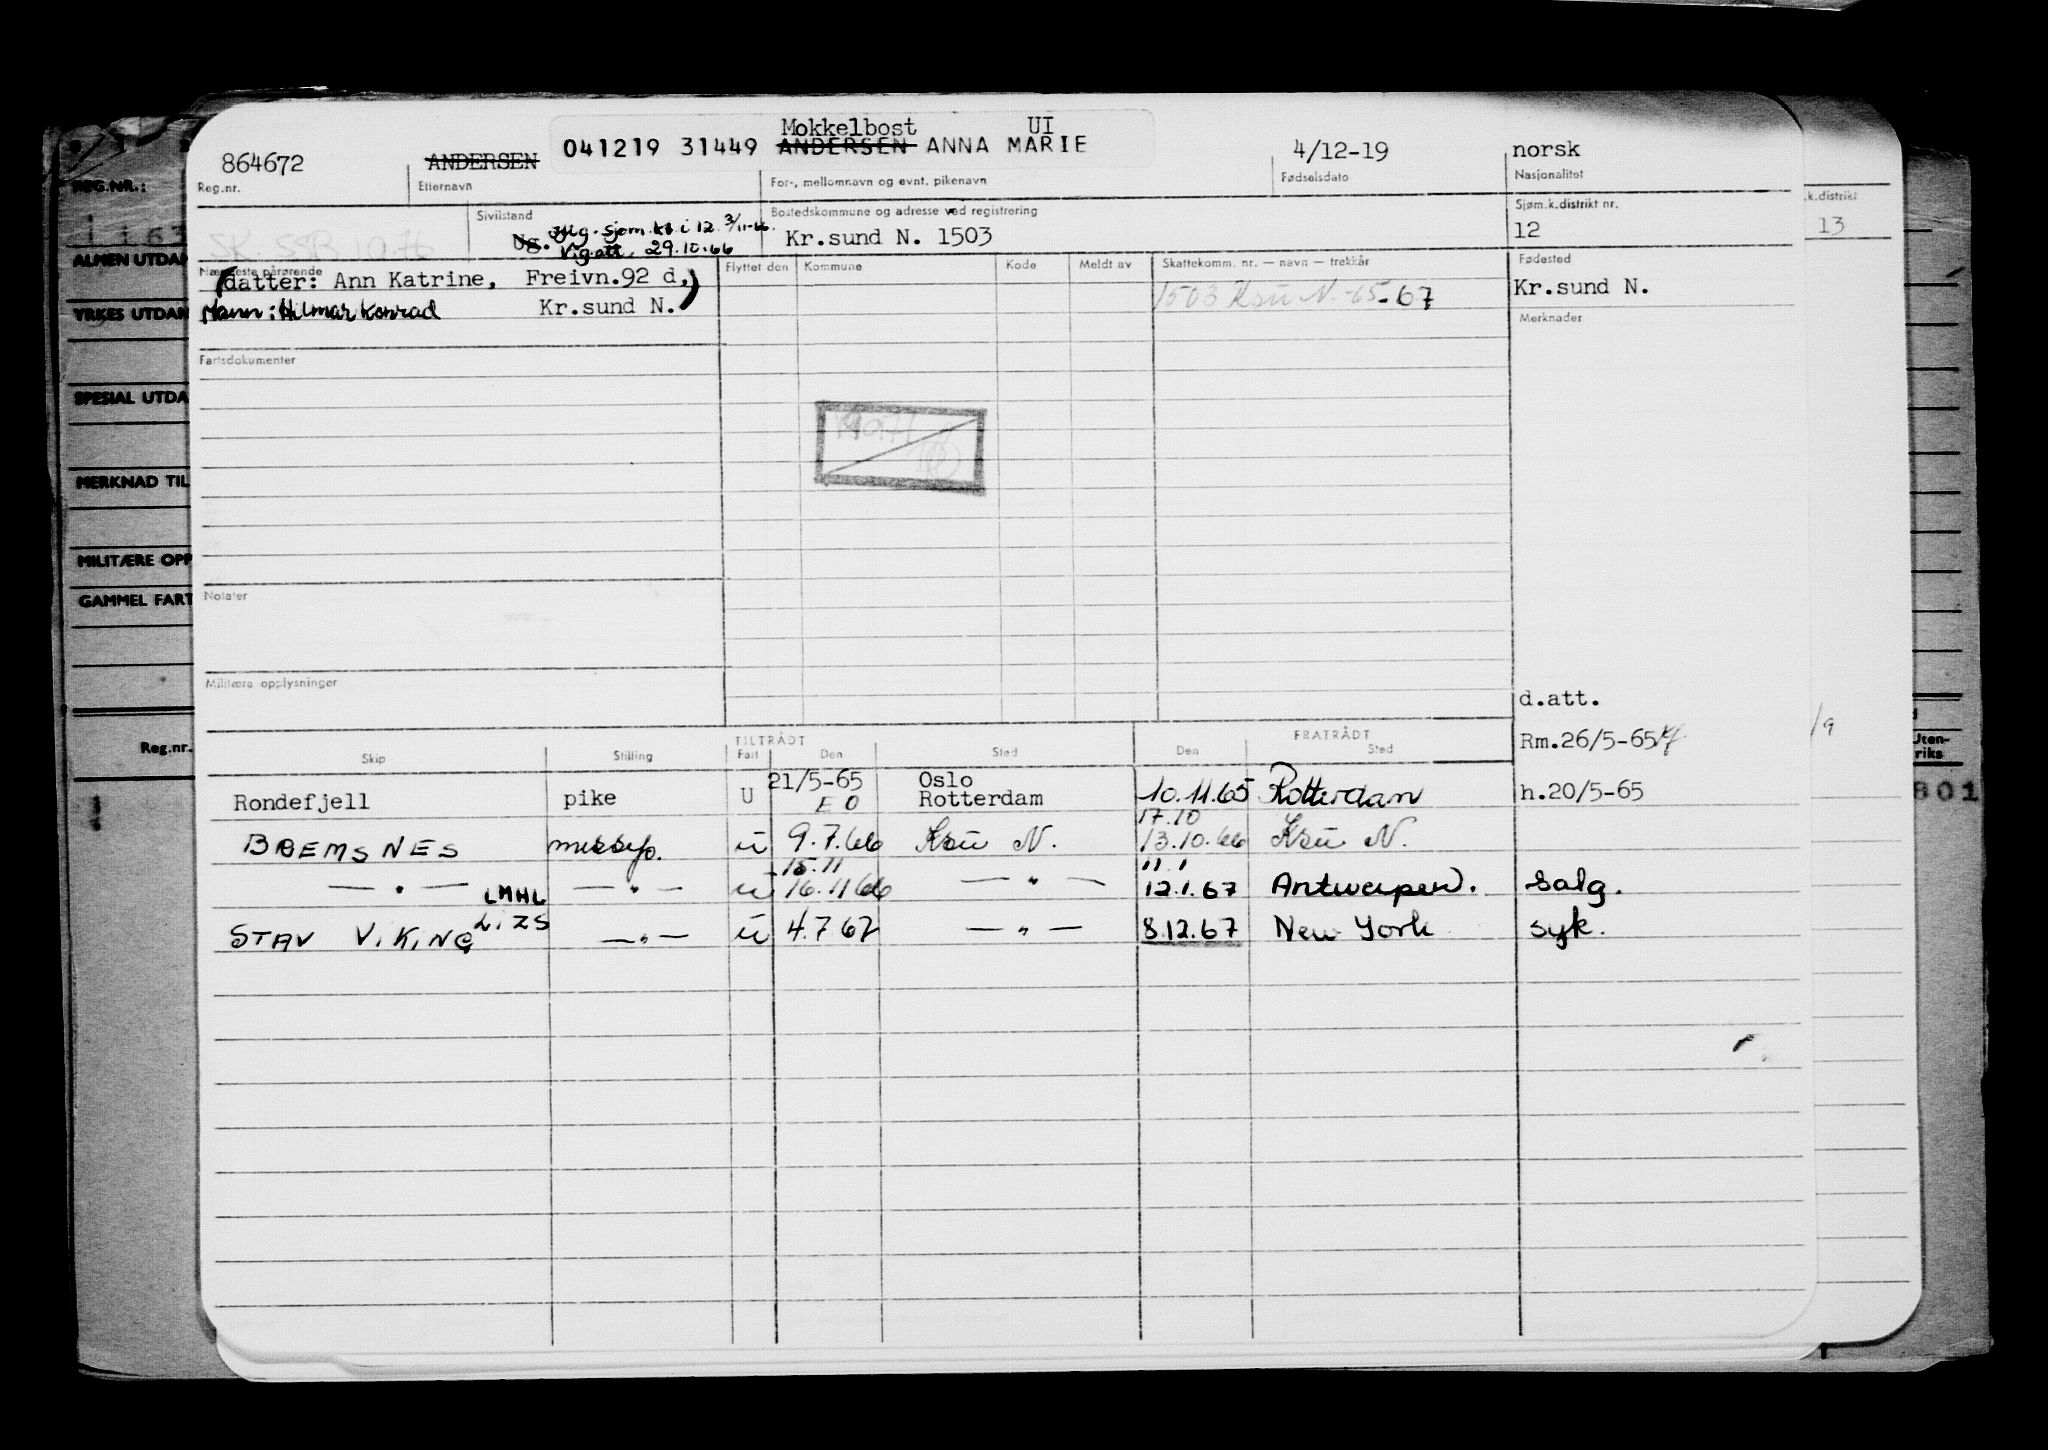 Mokkelbost UI
864672 ANDERSEN 041219 31449 ANDERSEN ANNA MARIE 4/12-19 norsk
Reg.nr. Etternavn For-, mellomnavn og evnt. pikenavn Fødselsdato Nasjonalitet
REG.NR.:
k.distrikt
Sivilstand Bostedskommune og adresse ved registrering Sjøm.k.distrikt nr.
1163 SK. SSB 1076 Ug. iflg. sjøm.kt i 12 3/11-66. Kr.sund N. 1503 12 13
Vig.att. 29.10.66
ALMEN UTDAN
Nærmeste pårørende Flyttet den Kommune Kode Meldt av Skattekomm. nr. — navn — trekkår Fødested
(datter: Ann Katrine, Freivn.92 d,) 1503 Ksu N. -65-67 Kr.sund N.
Mann: Hilmar Konrad Kr.sund N.
YRKES UTDAN
Merknader
Fartsdokumenter
SPESIAL UTDA
MERKNAD TIL
MILITÆRE OPP
GAMMEL FART
Notater
Militære opplysninger
d.att.
Reg.nr.
TILTRÅDT FRATRÅDT Rm.26/5-65
Skip Stilling Fart Den Sted Den Sted
Uten-
riks
21/5-65 Oslo
Rondefjell pike U E O Rotterdam 10.11.65 Rotterdam h.20/5-65
801
17.10
BREMSNES messep. u 9.7.66 Ksu N. 13.10.66 Ksu N.
15.11 11.1
— " — LMHL — " — u 16.11 66 — " — 12.1.67 Antwerpen. Salg.
STAV VIKING LIZS — " — u 4.7 67 — " — 8.12.67 New York syk.